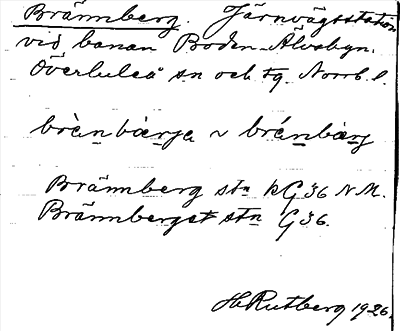 Brännberg. Järnvägsstation
vid banan Boden-Älvsbyn.
Överluleå sn och tg. Norrb. l.
bràn bærja ~ brénbærj
Brännberg stn kG36 N.M.
Brännberget stn G36.
H Rutberg 1926.